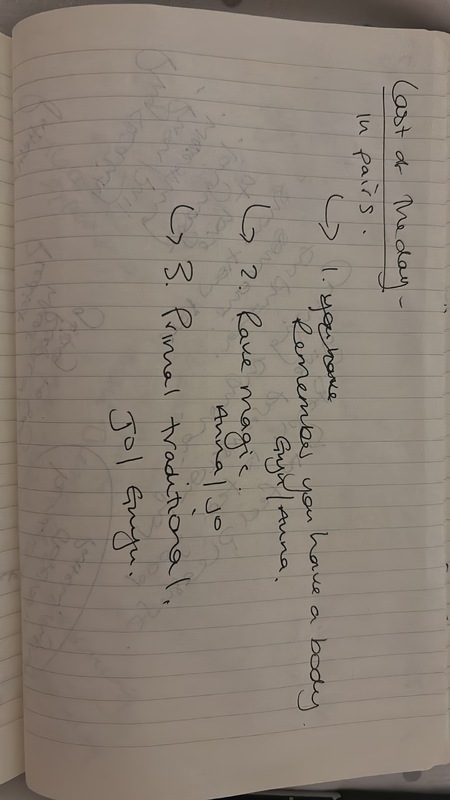 Last of the day -
in pairs.
↳ 1. you have
Remember you have a body.
Gwyn/Anna.
↳ 2. Rave magic.
Anna/Jo
↳ 3. Primal traditional.
Jo/Gwyn.